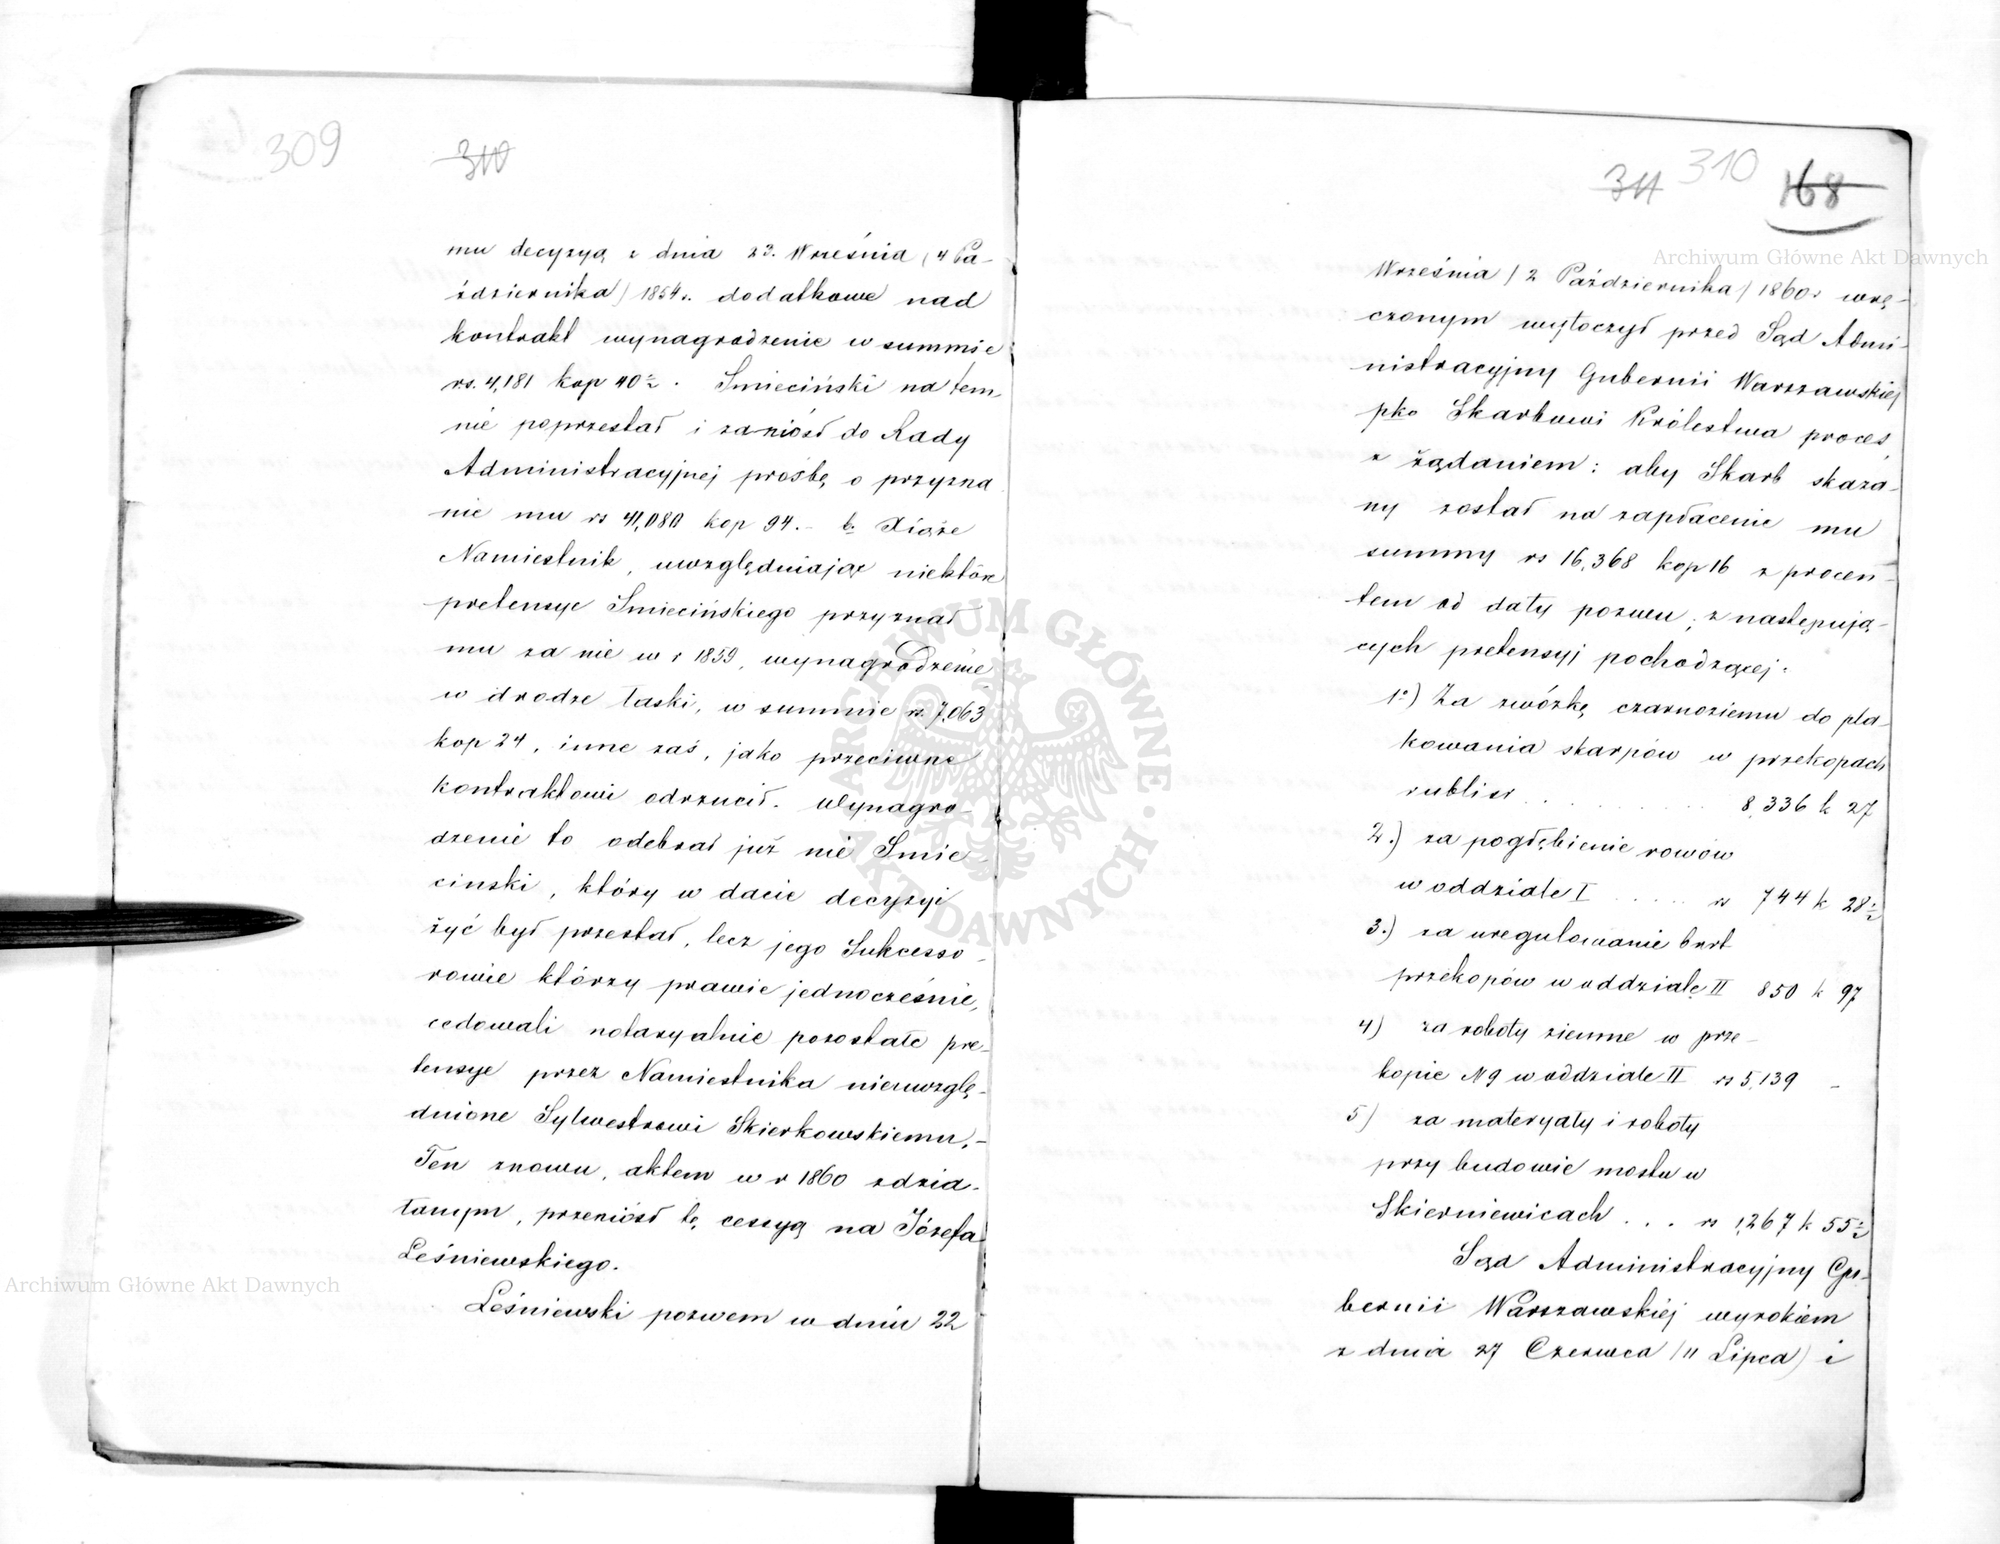 309
310
mu decyzyą z dnia 23. Września (4 Pa-
ździernika) 1854 r. dodatkowe nad
kontrakt wynagrodzenie w summie
rs. 4,181 kop 40½. Smieciński na tem
nie poprzestał i zaniósł do Rady
Administracyjnej prośbę o przyzna
nie mu rs 41,080 kop 94.- b. Xiąże
Namiestnik, uwzględniając niektóre
pretensye Smiecińskiego przyznał
mu za nie w r 1859, wynagrodzenie
w drodze łaski, w summie rs. 7,063
kop 24, inne zaś, jako przeciwne
kontraktowi odrzucił. Wynagro-
dzenie to odebrał już nie Smie-
cinski, który w dacie decyzyi
żyć był przestał, lecz jego Sukcesso-
rowie którzy prawie jednocześnie,
cedowali notaryalnie pozostałe pre-
tensye przez Namiestnika nieuwzglę-
dnione Sylwestrowi Skierkowskiemu,-
Ten znowu, aktem w r 1860 zdzia-
łanym, przeniósł tę cessyą na Józefa
Leśniewskiego.
Leśniewski pozwem w dniu 22
311 310 168
Września / 2 Października / 1860 r wrę-
czonym wytoczył przed Sąd Admi-
nistracyjny Gubernii Warszawskiej
pko Skarbowi Królestwa proces,
z żądaniem: aby Skarb skaza-
ny został na zapłacenie mu
summy rs 16,368 kop 16 z procen-
tem od daty pozwu, z następują-
cych pretensyj pochodzącej:
1°) Za zwózkę czarnoziemu do pla-
kowania skarpów w przekopach
rubli sr . . . . . . . . . 8,336 k 27
2.) za pogłębienie rowów
w oddziale I . . . . . rs 744 k 28½
3.) za uregulowanie burt
przekopów w oddziale II 850 k 97
4) za roboty ziemne w prze-
kopie N 9 w oddziale II rs 5,139 -
5) za materyały i roboty
przy budowie mostu w
Skierniewicach . . . rs 1,267 k 55½
Sąd Administracyjny Gu-
bernii Warszawskiej wyrokiem
z dnia 27 Czerwca / 11 Lipca) i
Archiwum Główne Akt Dawnych
Archiwum Główne Akt Dawnych
ARCHIWUM GŁÓWNE AKT DAWNYCH